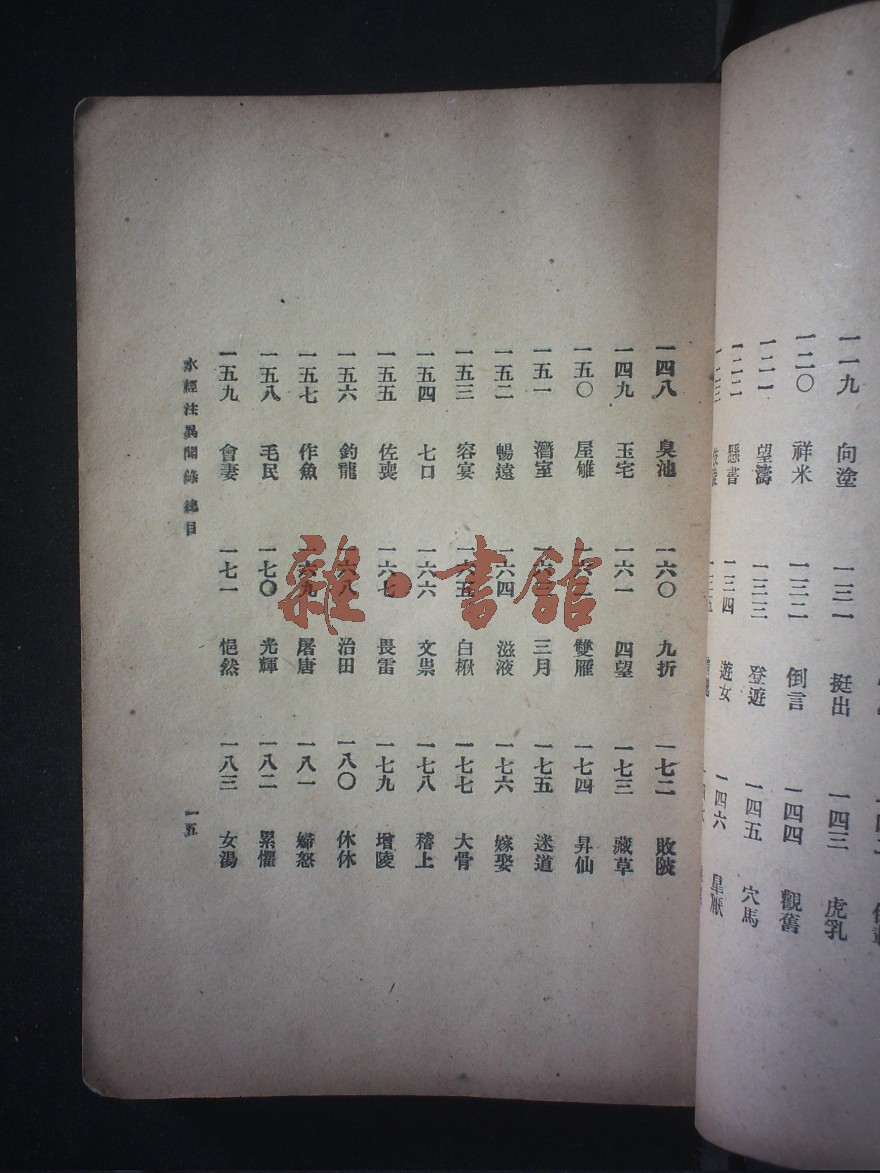 一一九 向塗 一三一 挺出 一四三 虎乳
一二〇 祥米 一三二 倒言 一四四 觀舊
一二一 望濤 一三三 登遊 一四五 穴馬
一二二 懸書 一三四 遊女 一四六
一四八 臭池 一六〇 九折 一七二 敗陂
一四九 玉宅 一六一 四望 一七三 藏草
一五〇 屋雊 一六二 雙雁 一七四 昇仙
一五一 濳室 一六三 三月 一七五 迷道
一五二 暢遠 一六四 滋液 一七六 嫁娶
一五三 容宴 一六五 白楸 一七七 大骨
一五四 七口 一六六 文祟 一七八 稽上
一五五 佐喪 一六七 畏雷 一七九 增陵
一五六 釣龍 一六八 治田 一八〇 休休
一五七 作魚 一六九 屠唐 一八一 婦怒
一五八 毛民 一七〇 光輝 一八二 累懼
一五九 會妻 一七一 悒然 一八三 女湯
水經注異聞錄 總目
一五
雜·書館